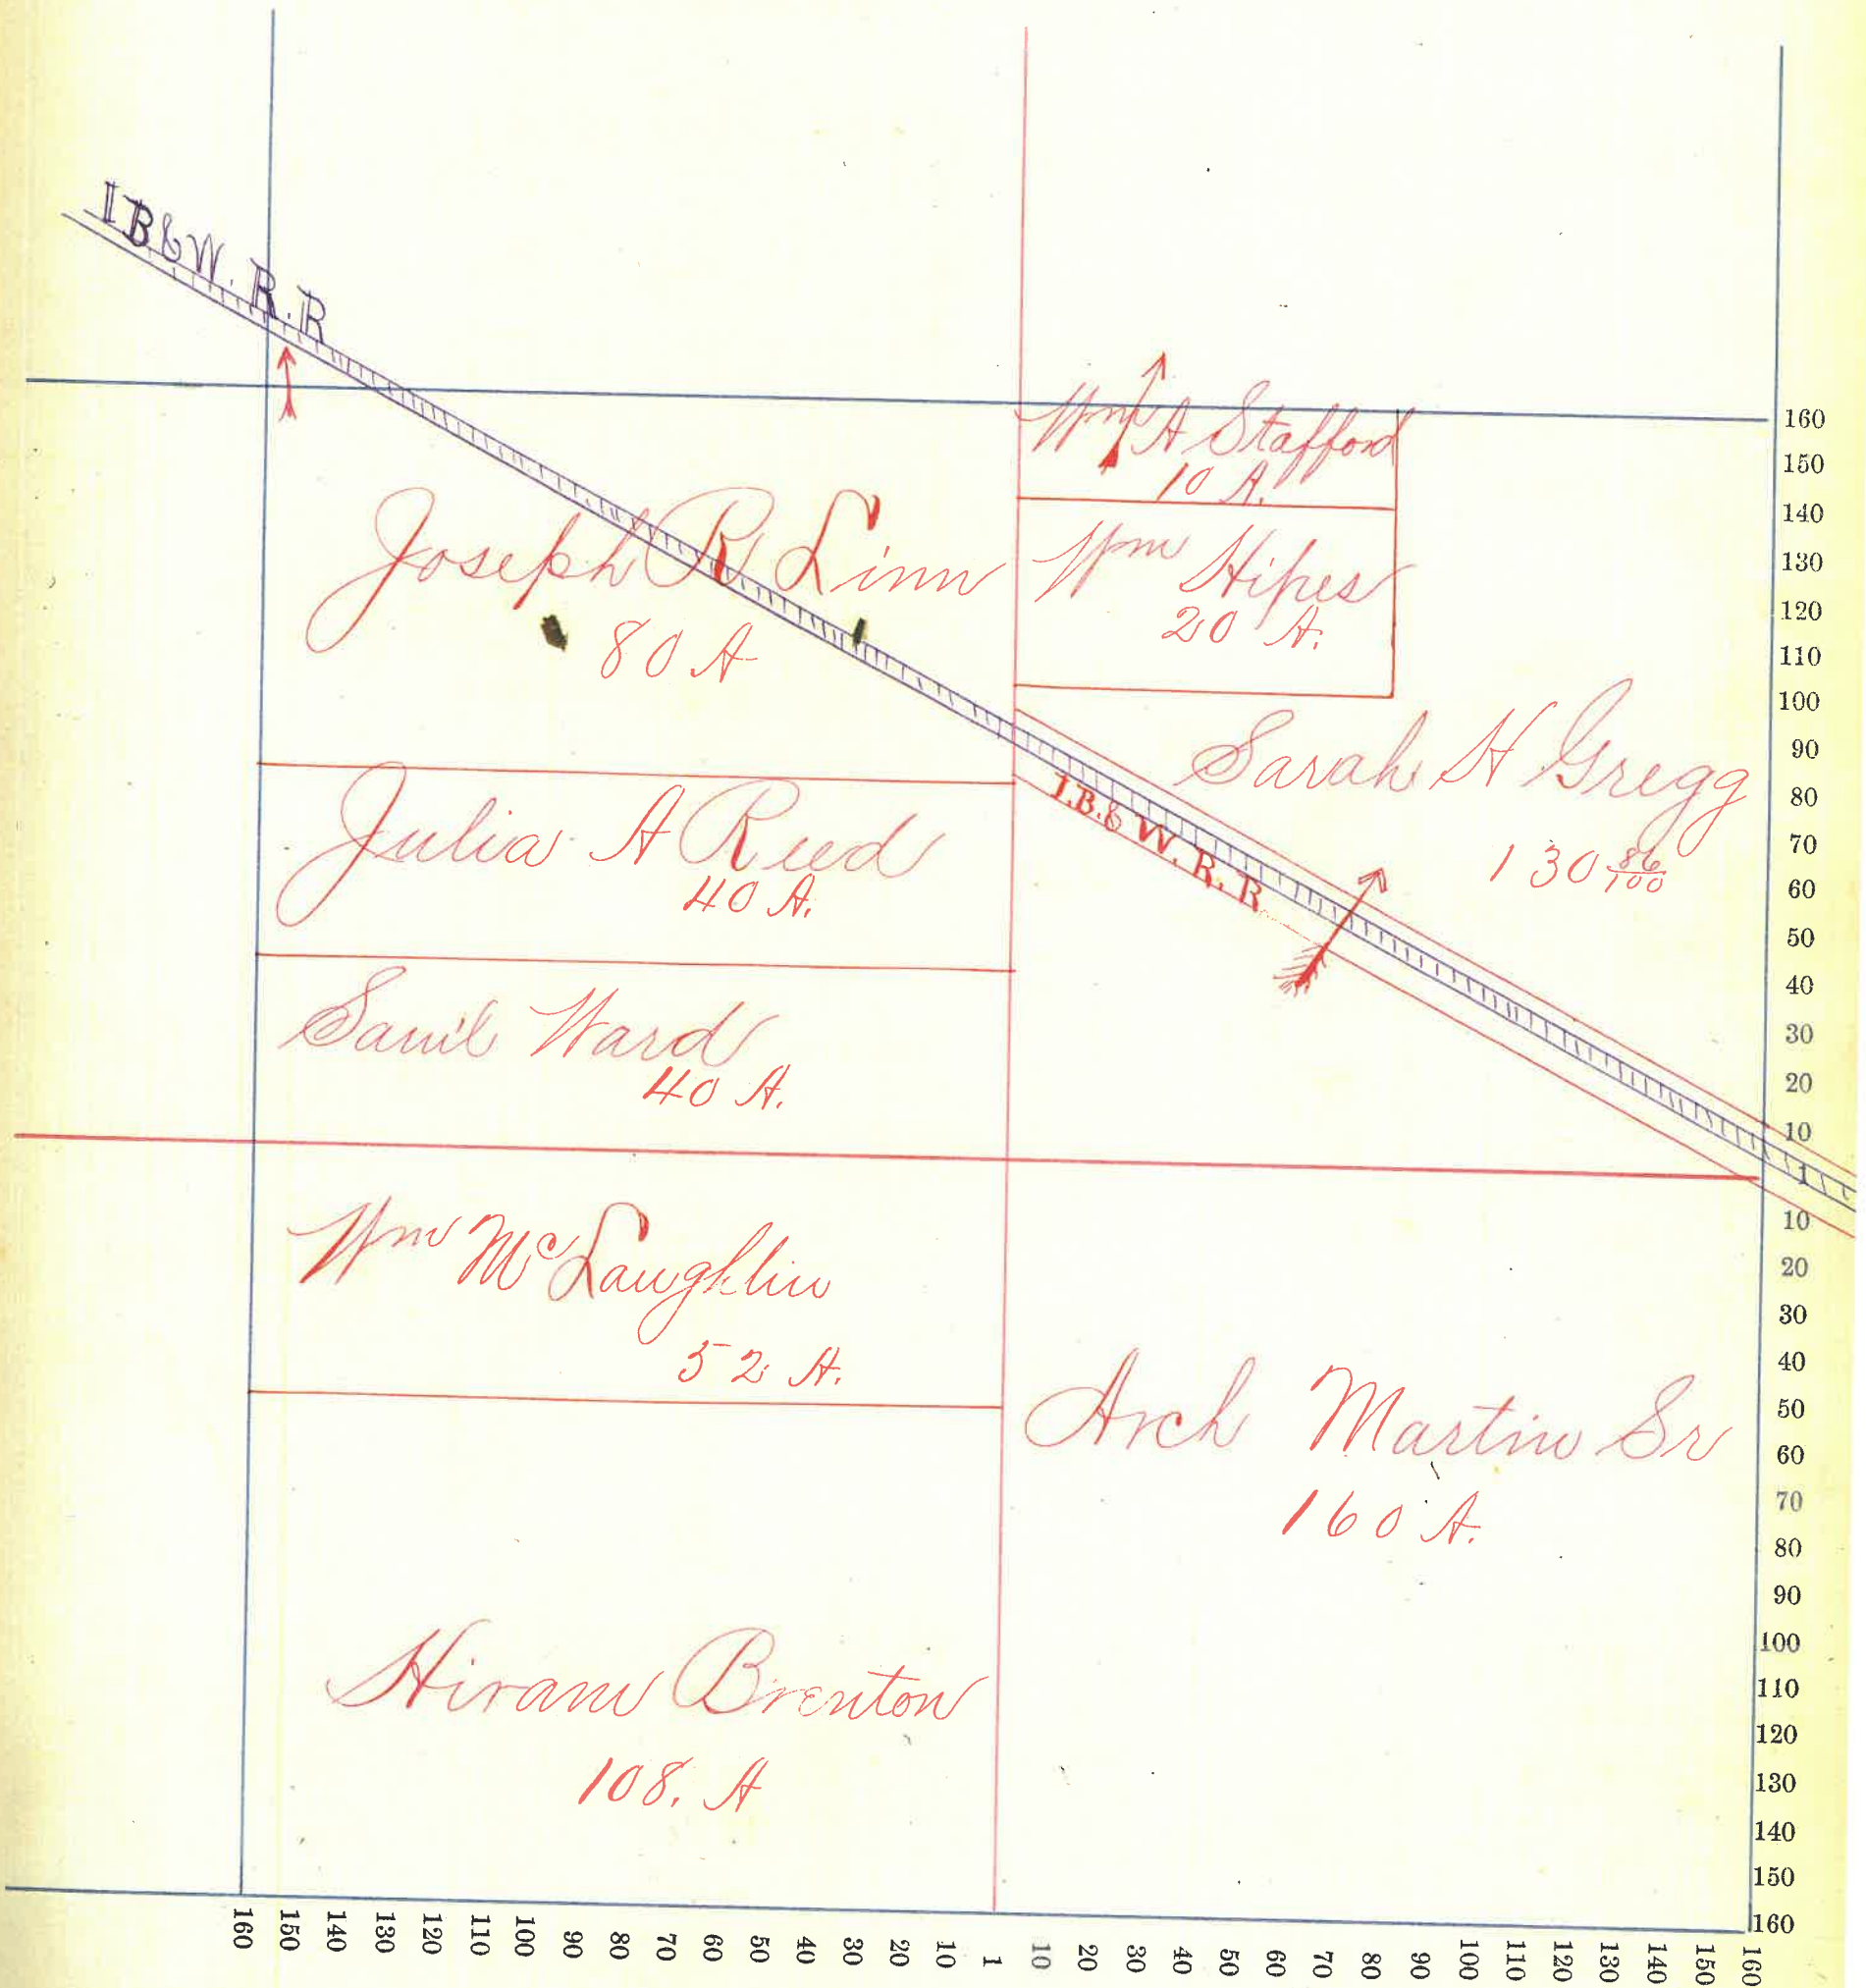 I B & W. R. R
Wm A Stafford
10 A.
Joseph R Linn
80 A
Wm Hipes
20 A.
Sarah H Gregg
130 86/100
I.B. & W. R. R
Julia A Reed
40 A.
Sam'l Ward
40 A.
Wm McLaughlin
52 A.
Arch Martin Sr
160 A.
Hiram Brenton
108. A
160
150
140
130
120
110
100
90
80
70
60
50
40
30
20
10
1
10
20
30
40
50
60
70
80
90
100
110
120
130
140
150
160
160 150 140 130 120 110 100 90 80 70 60 50 40 30 20 10 1 10 20 30 40 50 60 70 80 90 100 110 120 130 140 150 160